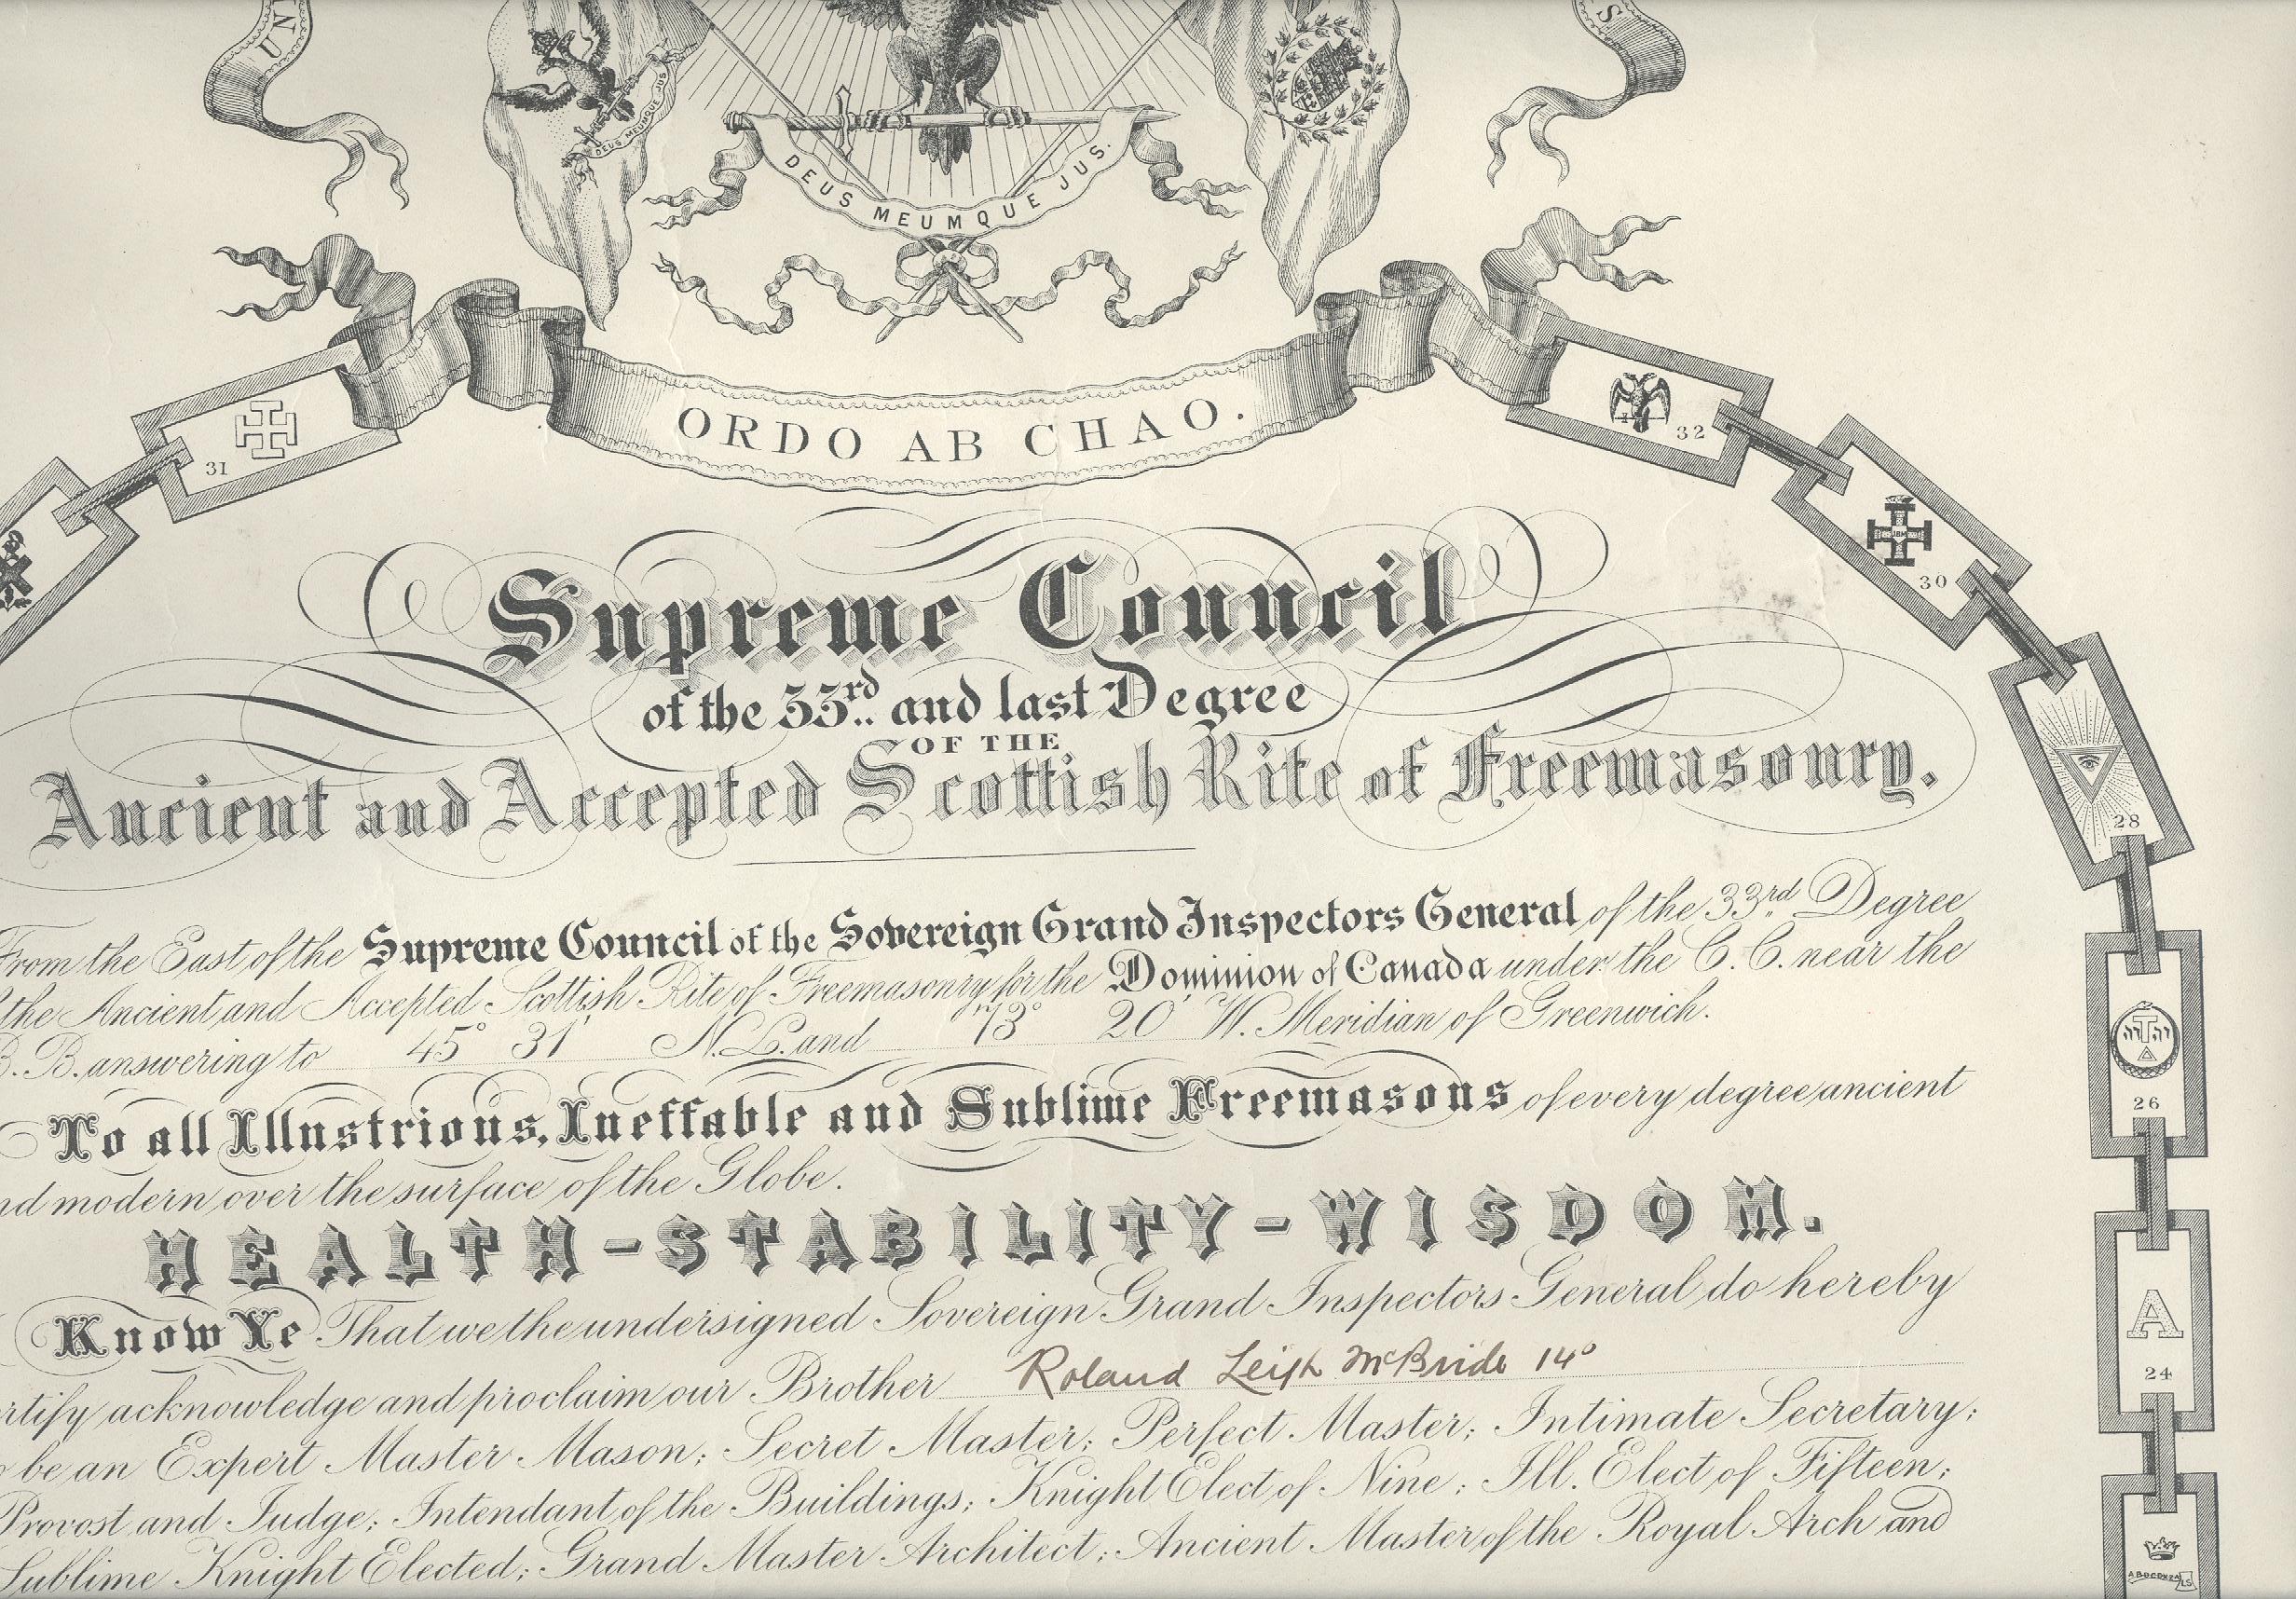 UN
S
DEUS MEUMQUE JUS
DEUS MEUMQUE JUS.
ORDO AB CHAO.
31
32
30
28
26
24
Supreme Council
of the 33rd and last Degree
OF THE
Ancient and Accepted Scottish Rite of Freemasonry.
From the East of the Supreme Council of the Sovereign Grand Inspectors General of the 33rd Degree
the Ancient and Accepted Scottish Rite of Freemasonry for the Dominion of Canada under the C. C. near the
B. B. answering to 45° 31' N. L. and 73° 20' W. Meridian of Greenwich.
To all Illustrious, Ineffable and Sublime Freemasons of every degree ancient
nd modern over the surface of the Globe.
HEALTH-STABILITY-WISDOM.
Know Ye That we the undersigned Sovereign Grand Inspectors General do hereby
rtify acknowledge and proclaim our Brother Roland Leigh McBride 14°
be an Expert Master Mason; Secret Master; Perfect Master; Intimate Secretary;
Provost and Judge; Intendant of the Buildings; Knight Elect of Nine; Ill. Elect of Fifteen;
Sublime Knight Elected; Grand Master Architect; Ancient Master of the Royal Arch and
A
T
LS